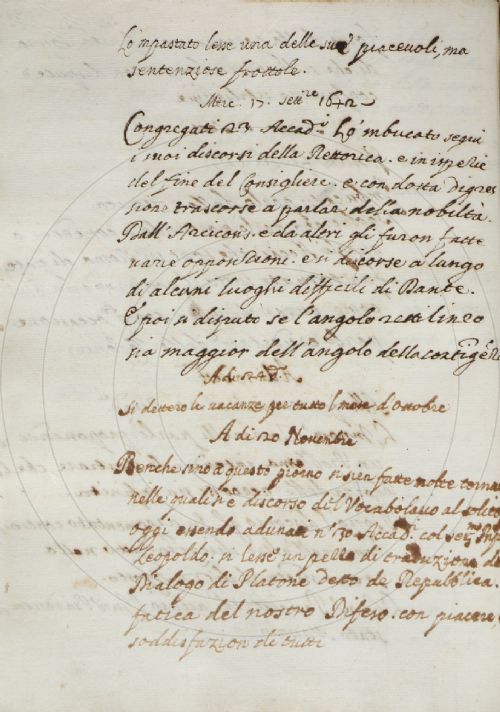 Lo mpastato lesse una delle sue piacevoli, ma
sentenziose frottole.
Merc. 17. Sett.re 1642
Congregati 23 Accad.i Lo mbucato seguì
i suoi discorsi della Rettorica. e in ispezie
del fine del Consigliere. e con dotta digres
sione trascorse a parlar della nobiltà
Dall' Arcicons. e da altri gli furon fatte
varie opposizioni. e si discorse a lungo
di alcuni luoghi difficili di Dante.
E poi si disputò se l'angolo rettilineo
sia maggior dell'angolo della
A dì 24 d.o
Si dettero le vacanze per tutto l mese d'Ottobre
A dì 20 Novembre
Benche sino a questo giorno si sien fatte molte torna
nelle quali s'è discorso dil Vocabolario al solito
oggi essendo adunati n.o 30 Accad.i col ser.mo
Leopoldo. si lesse un pezzo di traduzione de
Dialogo di Platone detto de Repubblica.
fatica del nostro Difeso. con piacere e
soddisfazion di tutti